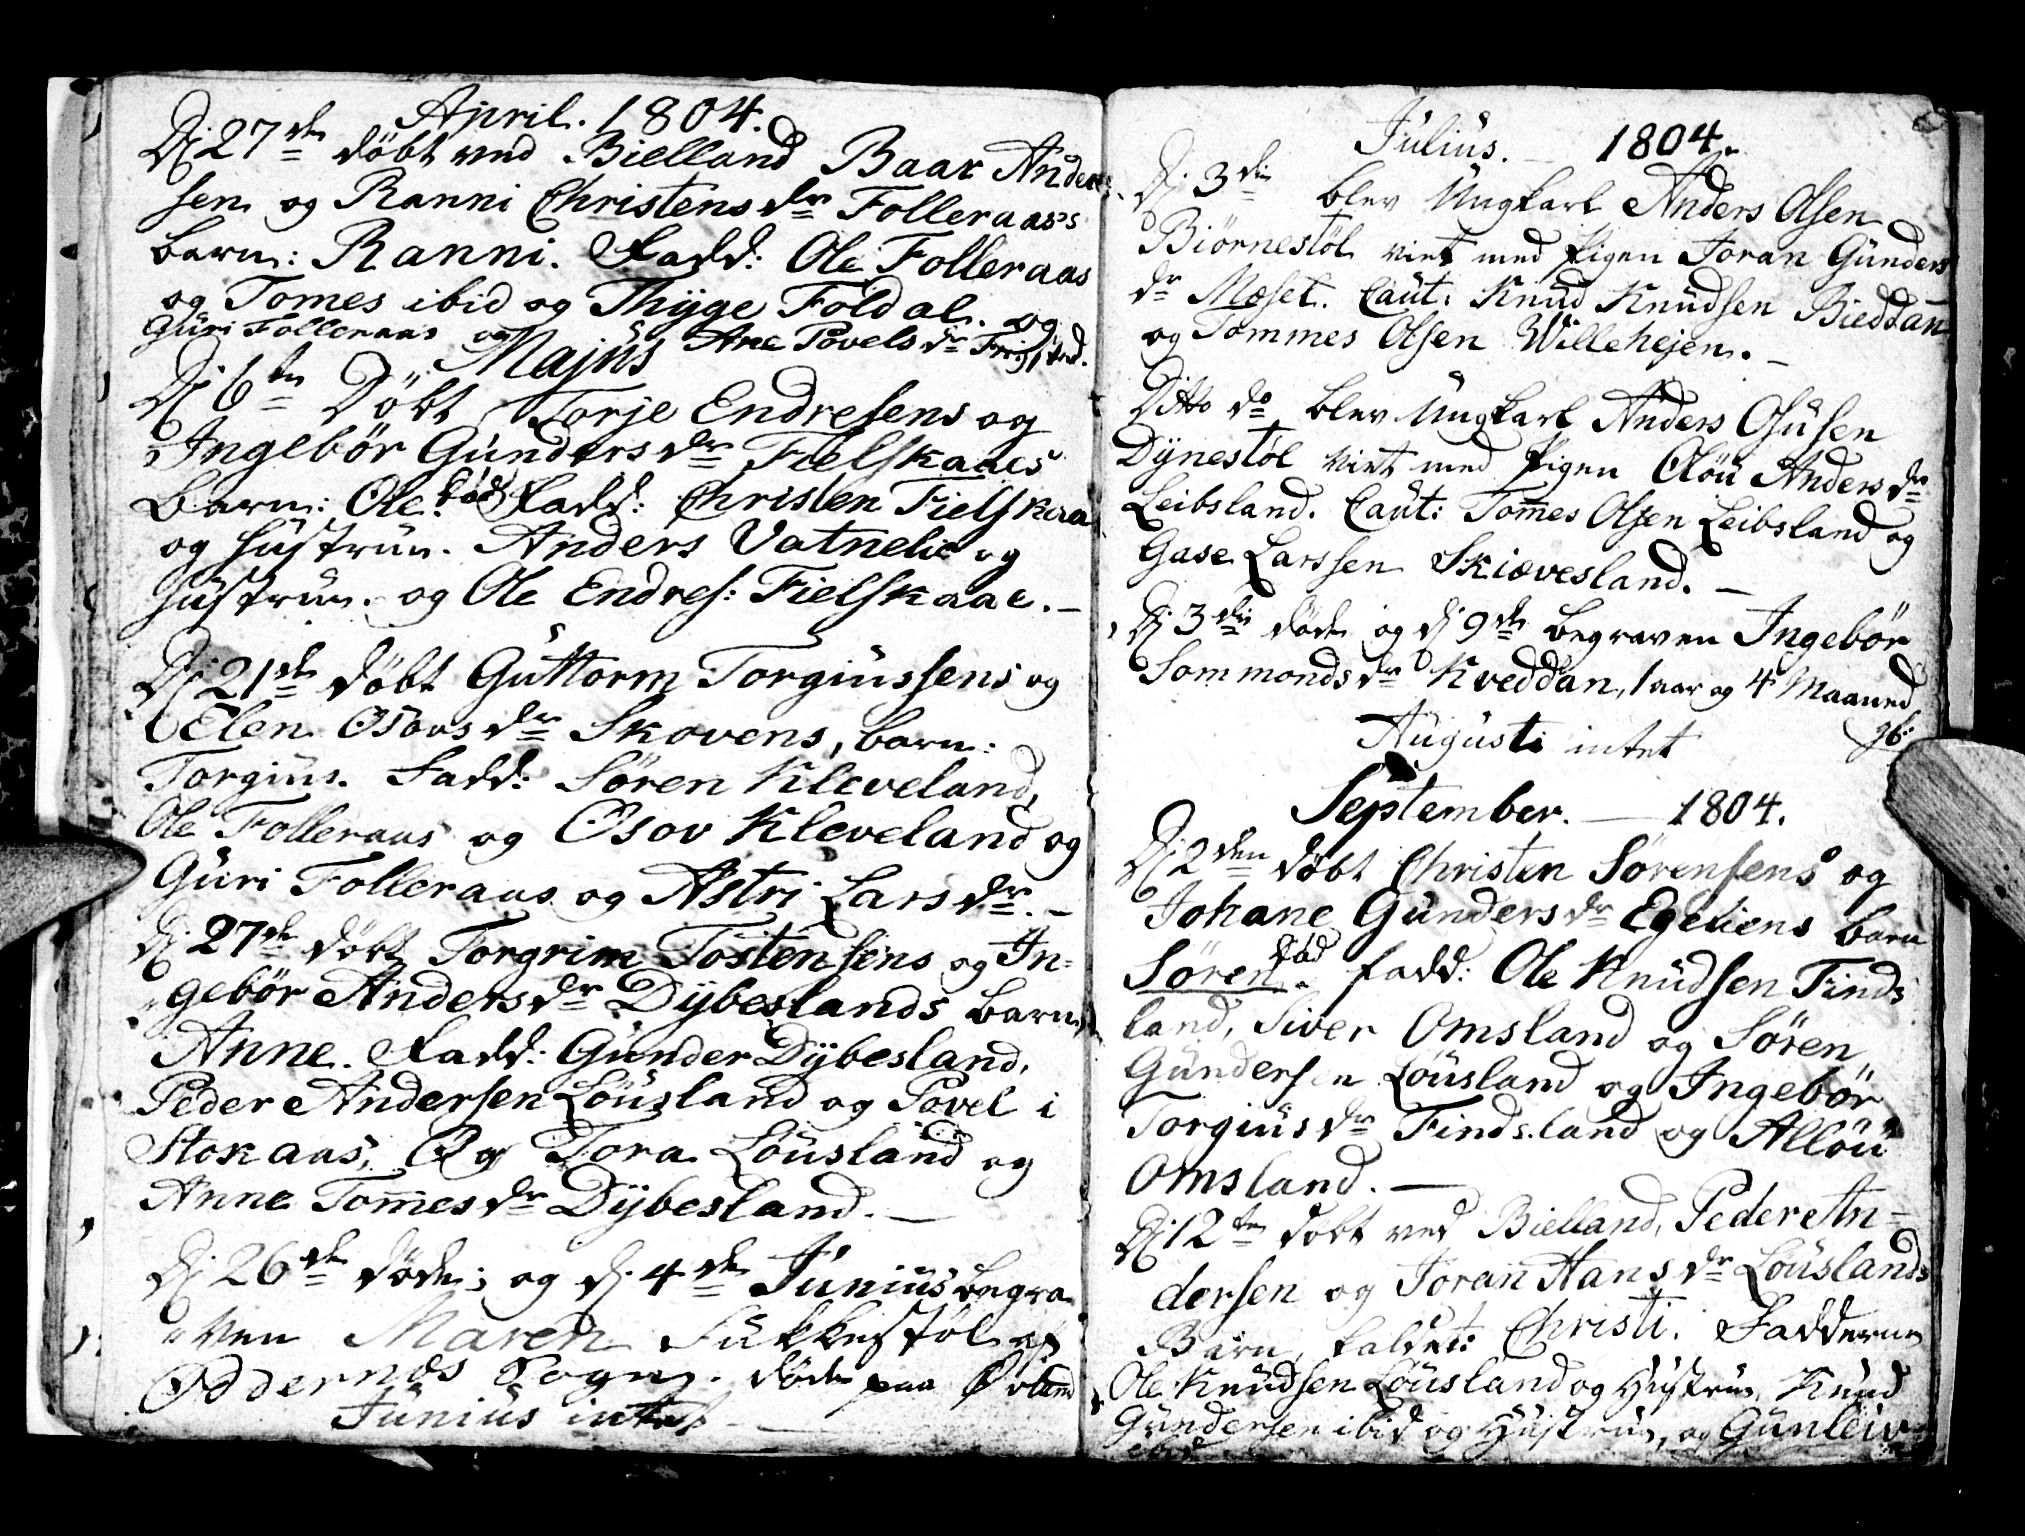 April. 1804.
Dj 27de döbt ved Bielland Baar Ander
sen og Ranni Christensdr Folleraas's
barn: Ranni. Fadd: Ole Folleraas
og Tomes ibid og Thÿge Foldal. og
Guri Folleraas og Ane Povelsdr
Majus
Dj 6te Döbt Torje Endresens og
Ingebör Gundersdr Fielskaaes
barn: Ole. död Fadd: Christen Fielskaa
og Hustrue. Anders Vatnelie og
Hustrue. og Ole Endres: Fielskaae. —
Dj 21de döbt Guttorm Torgiussens og
Elen Osovsdr Skovens, barn:
Torgius. Fadd: Sören Kleveland,
Ole Folleraas og Osov Kleveland og
Guri Folleraas og Astri Larsdr. —
Dj 27de döbt Torgrim Töstensens og In-
gebör Andersdr Dÿbeslands barn
Anne. Fadd: Gunder Dÿbesland,
Peder Andersen Löusland og Povel i
Stokaas, Og Tora Löusland og
Anne Tom̅esdr Dÿbesland. —
Dj 26de döde; og dj. 4de Junius begra
ven Maren Fukkestöl af
Oddernes Sogn. döde paa Övland
Junius intet —
Julius. — 1804.
Dj 3die blev Ungkarl Anders Olsen
Biörnestöl viet med Pigen Joran Gunders
dr Moset. Caut: Knud Knudsen Bieddan
og Tommes Olsen Willehejen. —
Ditto do blev Ungkarl Anders Osusen
Dÿnestöl viet med Pigen Olöu Andersdr
Leibsland. Caut: Tom̅es Olsen Leibsland og
Gase Larssen Skiævesland. —
Dj 3die döde og dj 9de begraven Ingebör
Sommondsdr Kveddan, 1 aar og 4 Maaned
gl:
Augusti intet
September. — 1804.
Dj 2den döbt Christen Sörensens og
Johane Gundersdr Egeliens barn
Sören. död Fadd: Ole Knudsen Finds
land, Siver Omsland og Sören
Gundersen Löusland og Ingebör
Torgiusdr Findsland og Allöu
Omsland. —
Dj 12te döbt ved Bielland, Peder An-
dersen og Joran Hansdr Löuslands
Barn, kaldet: Christi. Fadderne
Ole Knudsen Löusland og Hustrue, Knud
Gundersen ibid og Hustrue, og Gunleiv